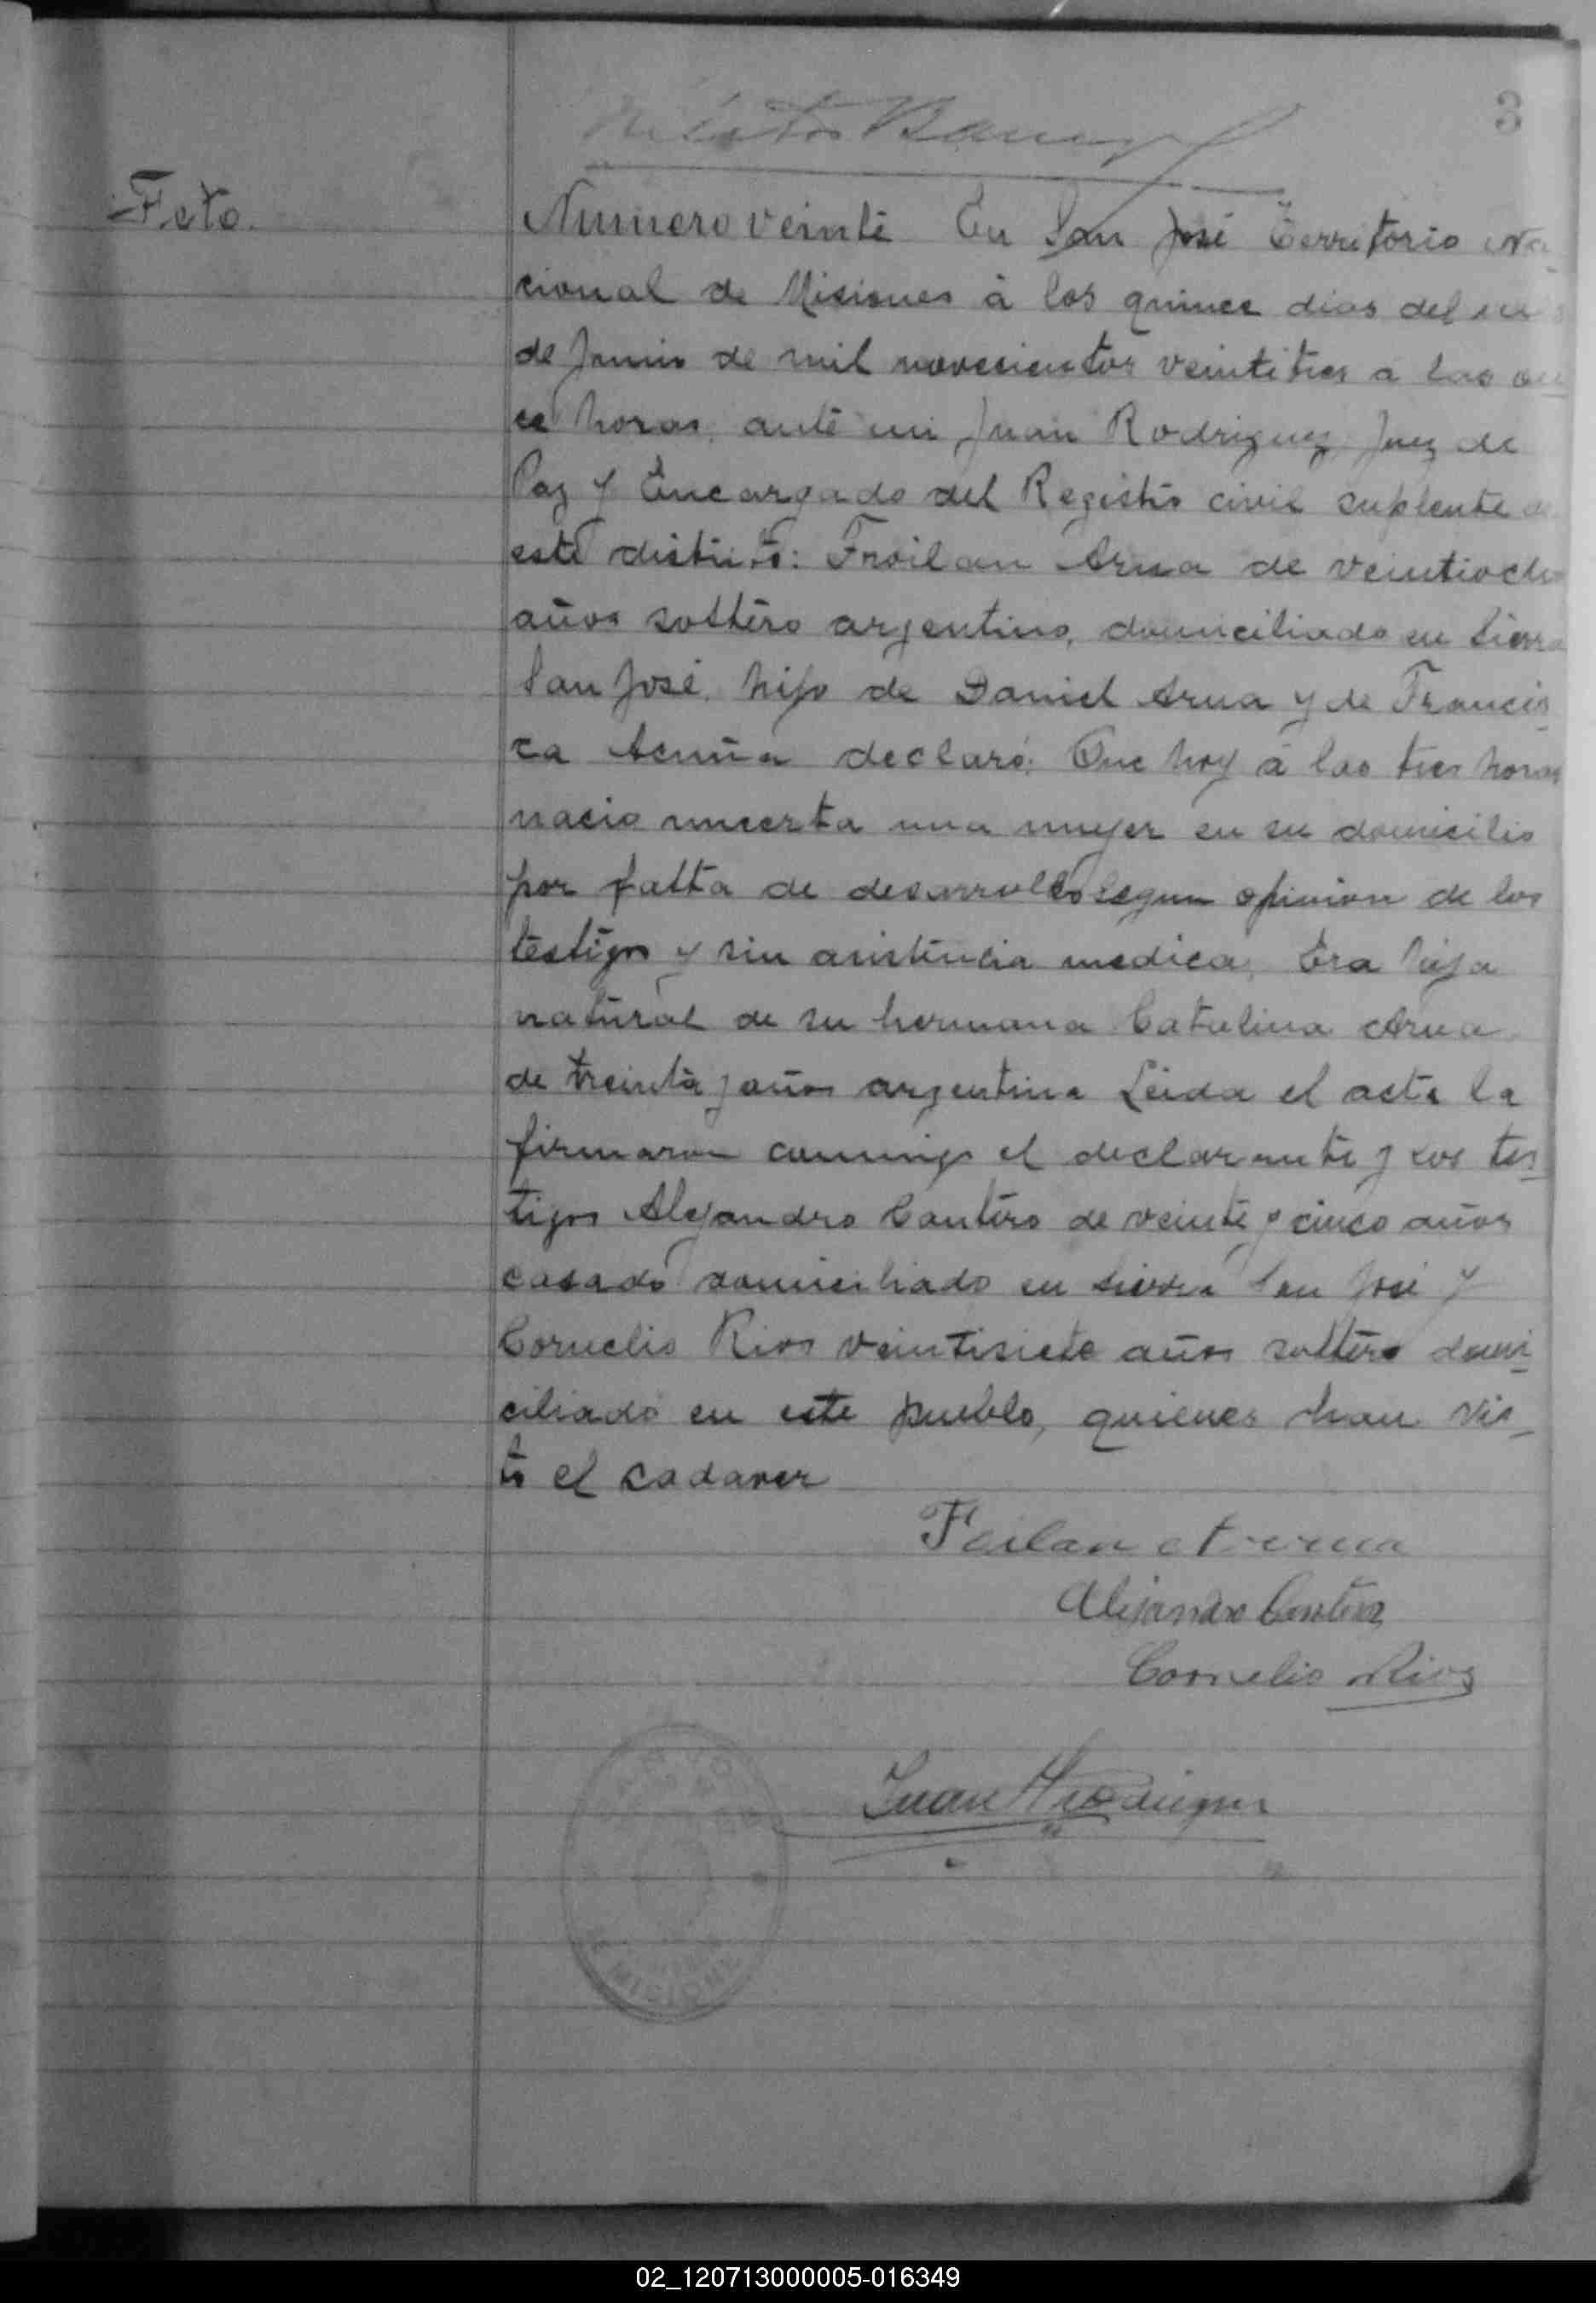 3
Feto.
Numero veinte En San José Territorio Na
cional de Misiones à los quince dias del mes
de Junio de mil novecientos veintitres a las on
ce horas, ante mi Juan Rodriguez Juez de
Paz y Encargado del Registro civil suplente de
este distrito: Froilan Arua de veintiocho
años soltero argentino, domiciliado en Sierra
San José, hijo de Daniel Arua y de Francis
ca Acuña declaró: Que hoy à las tres horas
nacio muerta una mujer en su domicilio
por falta de desarrollo segun opinion de los
testigos y sin asistencia medica, Era hija
natural de su hermana Catalina Arua
de treinta y años argentina Leida el acta la
firmaron conmigo el declarante y los tes
tigos Alejandro Cantero de veinte y cinco años
casado domiciliado en Sierra San José y
Cornelio Rios veintisiete años soltero domi
ciliado en este pueblo, quienes han vis
to el cadaver
Alejandro Cantero
Cornelio Rios
Juan Rodriguez
MISIONE
02_120713000005-016349